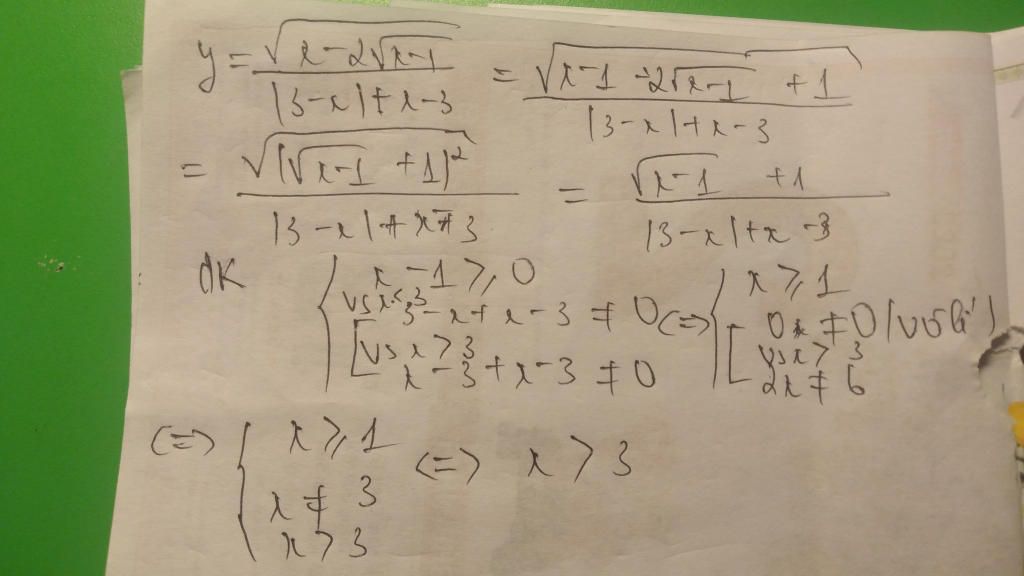 y = √(x-2√(x-1)) / (|3-x|+x-3) = √(x-1-2√(x-1)+1) / (|3-x|+x-3)
= √((√(x-1)+1)²) / (|3-x|+x-3) = (√(x-1)+1) / (|3-x|+x-3)
dK { x-1 ⩾ 0
vs x<3 3-x+x-3 ≠ 0
[ vs x>3 x-3+x-3 ≠ 0
<=> { x ⩾ 1
[ 0x ≠ 0 (vô lí)
vs x> 3
2x ≠ 6
<=> { x ⩾ 1
x ≠ 3
x > 3
<=> x > 3